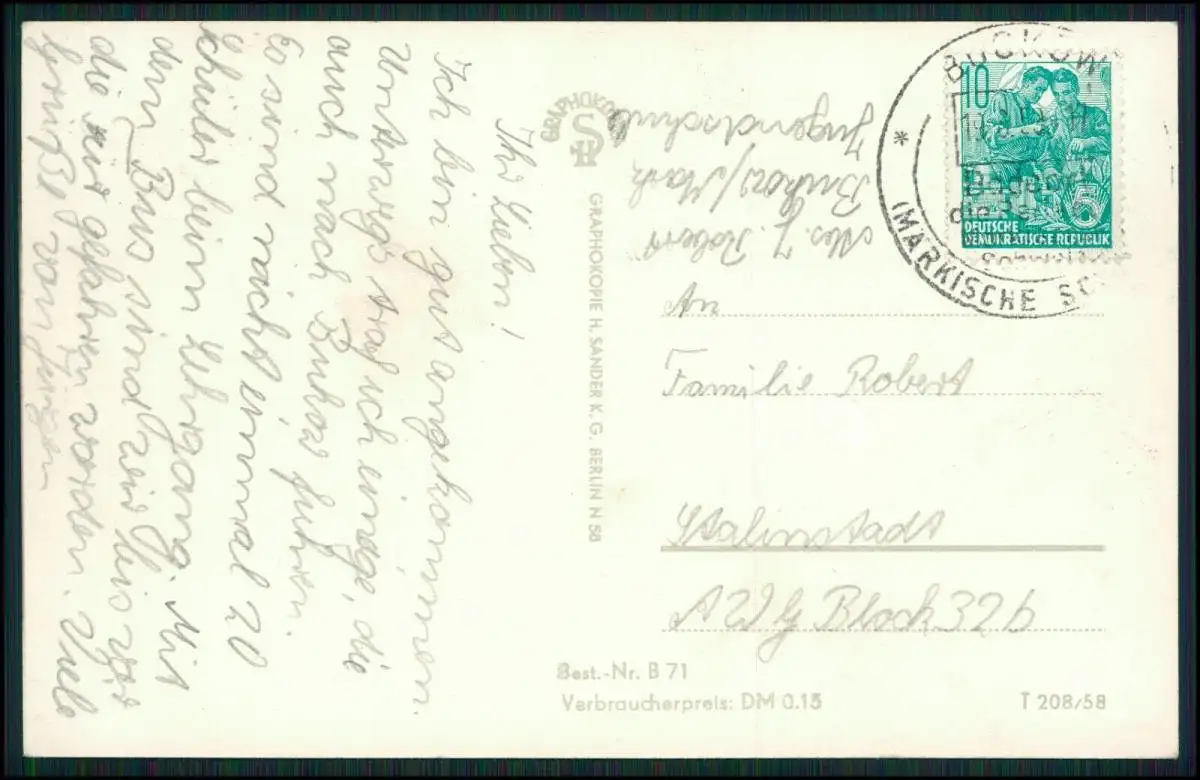 Ihr Lieben!
Ich bin gut angekommen.
Unterwegs traf ich einige, die
auch nach Bukow fuhren.
Es sind nicht einmal 20
Schüler beim Lehrgang. Mit
dem Bus sind wir bis vor
die gefahren worden. Viele
Grüße von Jürgen
GRAPHOKOPIE
SH
GRAPHOKOPIE H. SANDER K. G. BERLIN N 58
Abs. J. Robert
Bukow/Mark
Jugendschule
BUCKOW
(MÄRKISCHE SC
10
5
DEUTSCHE
DEMOKRATISCHE REPUBLIK
An
Familie Robert
Stalinstadt
AWG Block 32b
Best.-Nr. B 71
Verbraucherpreis: DM 0.15
T 208/58